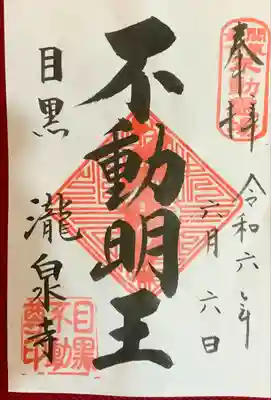 奉拝
令和六年
六月六日
不動明王
目黒 瀧泉寺
目黒
不動